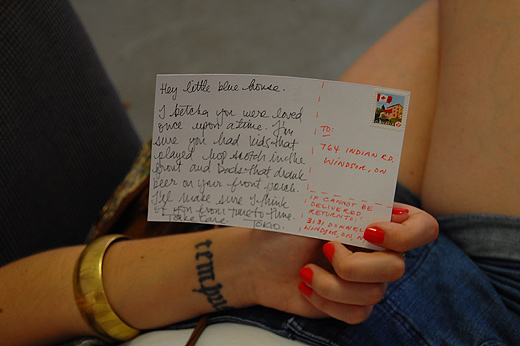 Hey little blue house.
I betcha you were loved
once upon a time. I'm
sure you had kids that
played hop scotch in the
front and Dads that drank
beer on your front porch.
I'll make sure I think
of you from time to time.
Take Care,
TO:
764 INDIAN RD.
WINDSOR, ON
IF CANNOT BE
DELIVERED
RETURN TO:
3131
WINDSOR, ON